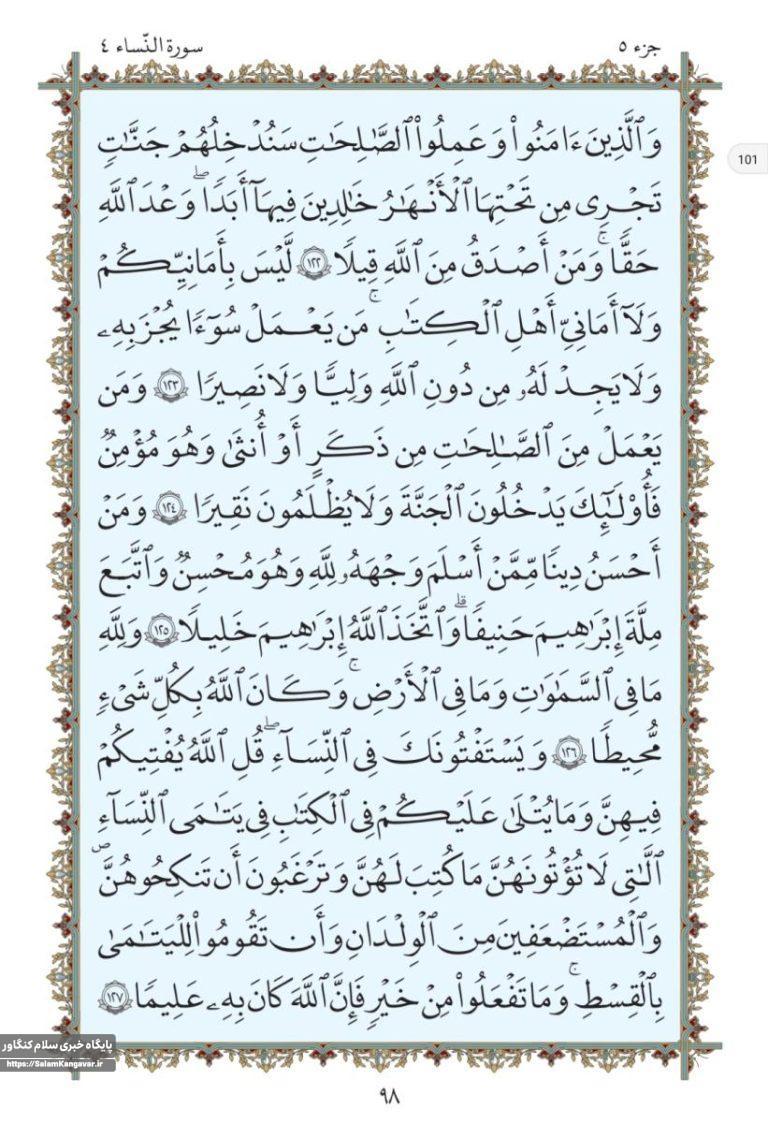 جزء ٥
سورة النّساء ٤
101
وَٱلَّذِينَ ءَامَنُوا۟ وَعَمِلُوا۟ ٱلصَّٰلِحَٰتِ سَنُدْخِلُهُمْ جَنَّٰتٍ
تَجْرِى مِن تَحْتِهَا ٱلْأَنْهَٰرُ خَٰلِدِينَ فِيهَآ أَبَدًا ۖ وَعْدَ ٱللَّهِ
حَقًّا ۚ وَمَنْ أَصْدَقُ مِنَ ٱللَّهِ قِيلًا ١٢٢ لَّيْسَ بِأَمَانِيِّكُمْ
وَلَآ أَمَانِىِّ أَهْلِ ٱلْكِتَٰبِ ۗ مَن يَعْمَلْ سُوٓءًا يُجْزَ بِهِۦ
وَلَا يَجِدْ لَهُۥ مِن دُونِ ٱللَّهِ وَلِيًّا وَلَا نَصِيرًا ١٢٣ وَمَن
يَعْمَلْ مِنَ ٱلصَّٰلِحَٰتِ مِن ذَكَرٍ أَوْ أُنثَىٰ وَهُوَ مُؤْمِنٌ
فَأُو۟لَٰٓئِكَ يَدْخُلُونَ ٱلْجَنَّةَ وَلَا يُظْلَمُونَ نَقِيرًا ١٢٤ وَمَنْ
أَحْسَنُ دِينًا مِّمَّنْ أَسْلَمَ وَجْهَهُۥ لِلَّهِ وَهُوَ مُحْسِنٌ وَٱتَّبَعَ
مِلَّةَ إِبْرَٰهِيمَ حَنِيفًا ۗ وَٱتَّخَذَ ٱللَّهُ إِبْرَٰهِيمَ خَلِيلًا ١٢٥ وَلِلَّهِ
مَا فِى ٱلسَّمَٰوَٰتِ وَمَا فِى ٱلْأَرْضِ ۚ وَكَانَ ٱللَّهُ بِكُلِّ شَىْءٍ
مُّحِيطًا ١٢٦ وَيَسْتَفْتُونَكَ فِى ٱلنِّسَآءِ ۖ قُلِ ٱللَّهُ يُفْتِيكُمْ
فِيهِنَّ وَمَا يُتْلَىٰ عَلَيْكُمْ فِى ٱلْكِتَٰبِ فِى يَتَٰمَى ٱلنِّسَآءِ
ٱلَّٰتِى لَا تُؤْتُونَهُنَّ مَا كُتِبَ لَهُنَّ وَتَرْغَبُونَ أَن تَنكِحُوهُنَّ
وَٱلْمُسْتَضْعَفِينَ مِنَ ٱلْوِلْدَٰنِ وَأَن تَقُومُوا۟ لِلْيَتَٰمَىٰ
بِٱلْقِسْطِ ۚ وَمَا تَفْعَلُوا۟ مِنْ خَيْرٍ فَإِنَّ ٱللَّهَ كَانَ بِهِۦ عَلِيمًا ١٢٧
پایگاه خبری سلام کنگاور
https://SalamKangavar.ir
٩٨